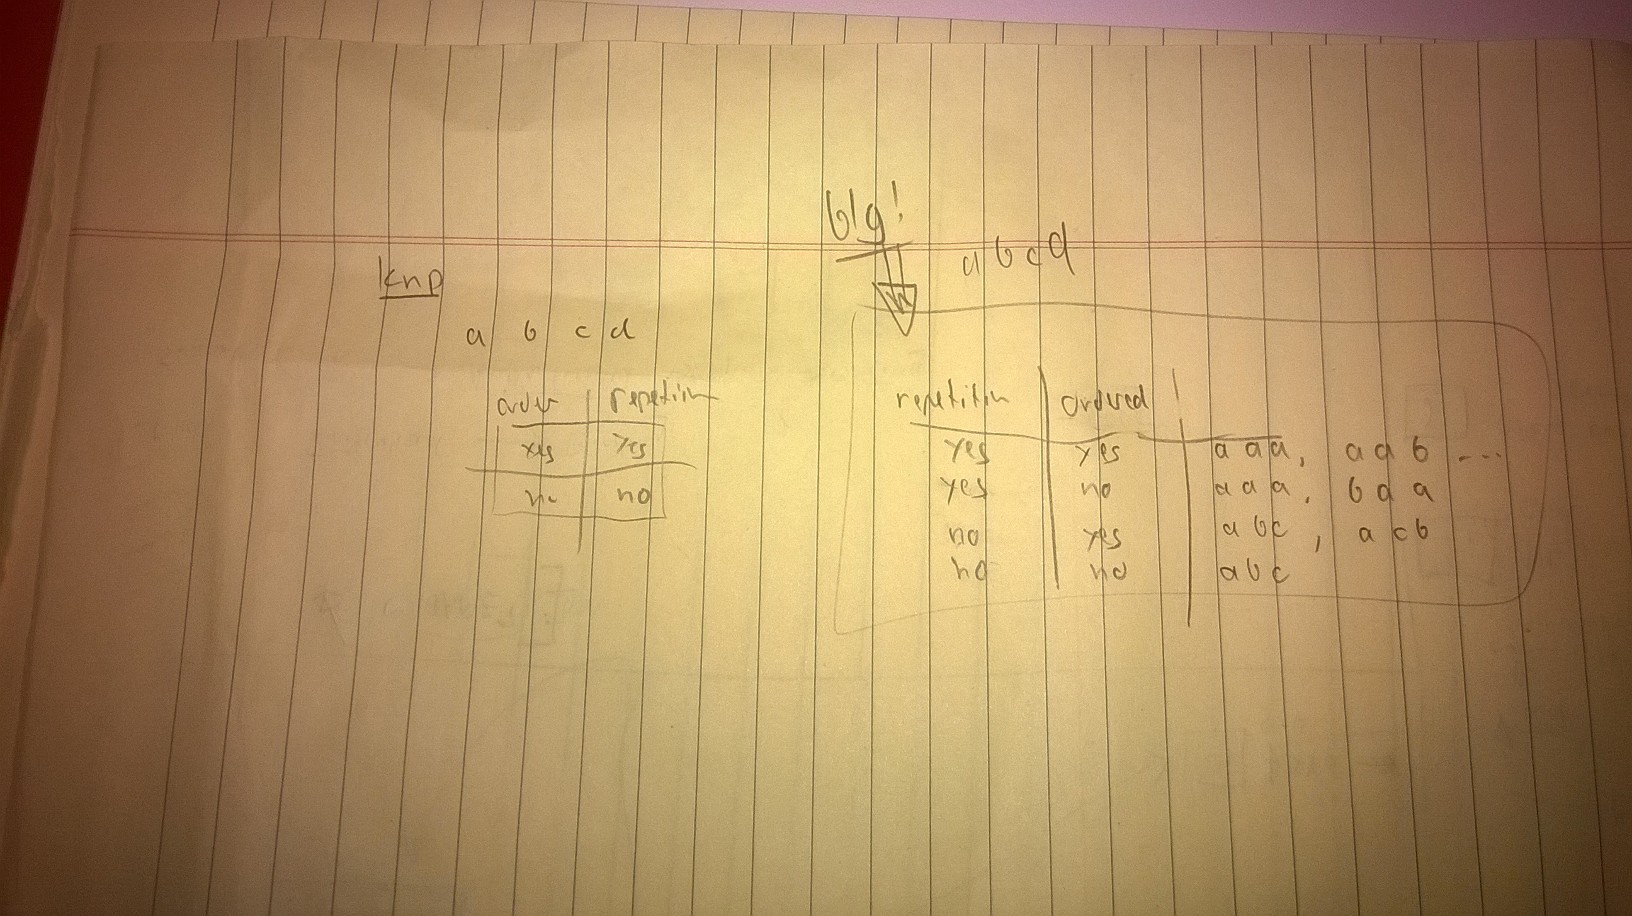 big!
a b c d
knp
a b c d
order repetition
yes yes
no no
repetition ordered
yes yes a a a, a a b ...
yes no a a a, b a a
no yes a b c, a c b
no no a b c